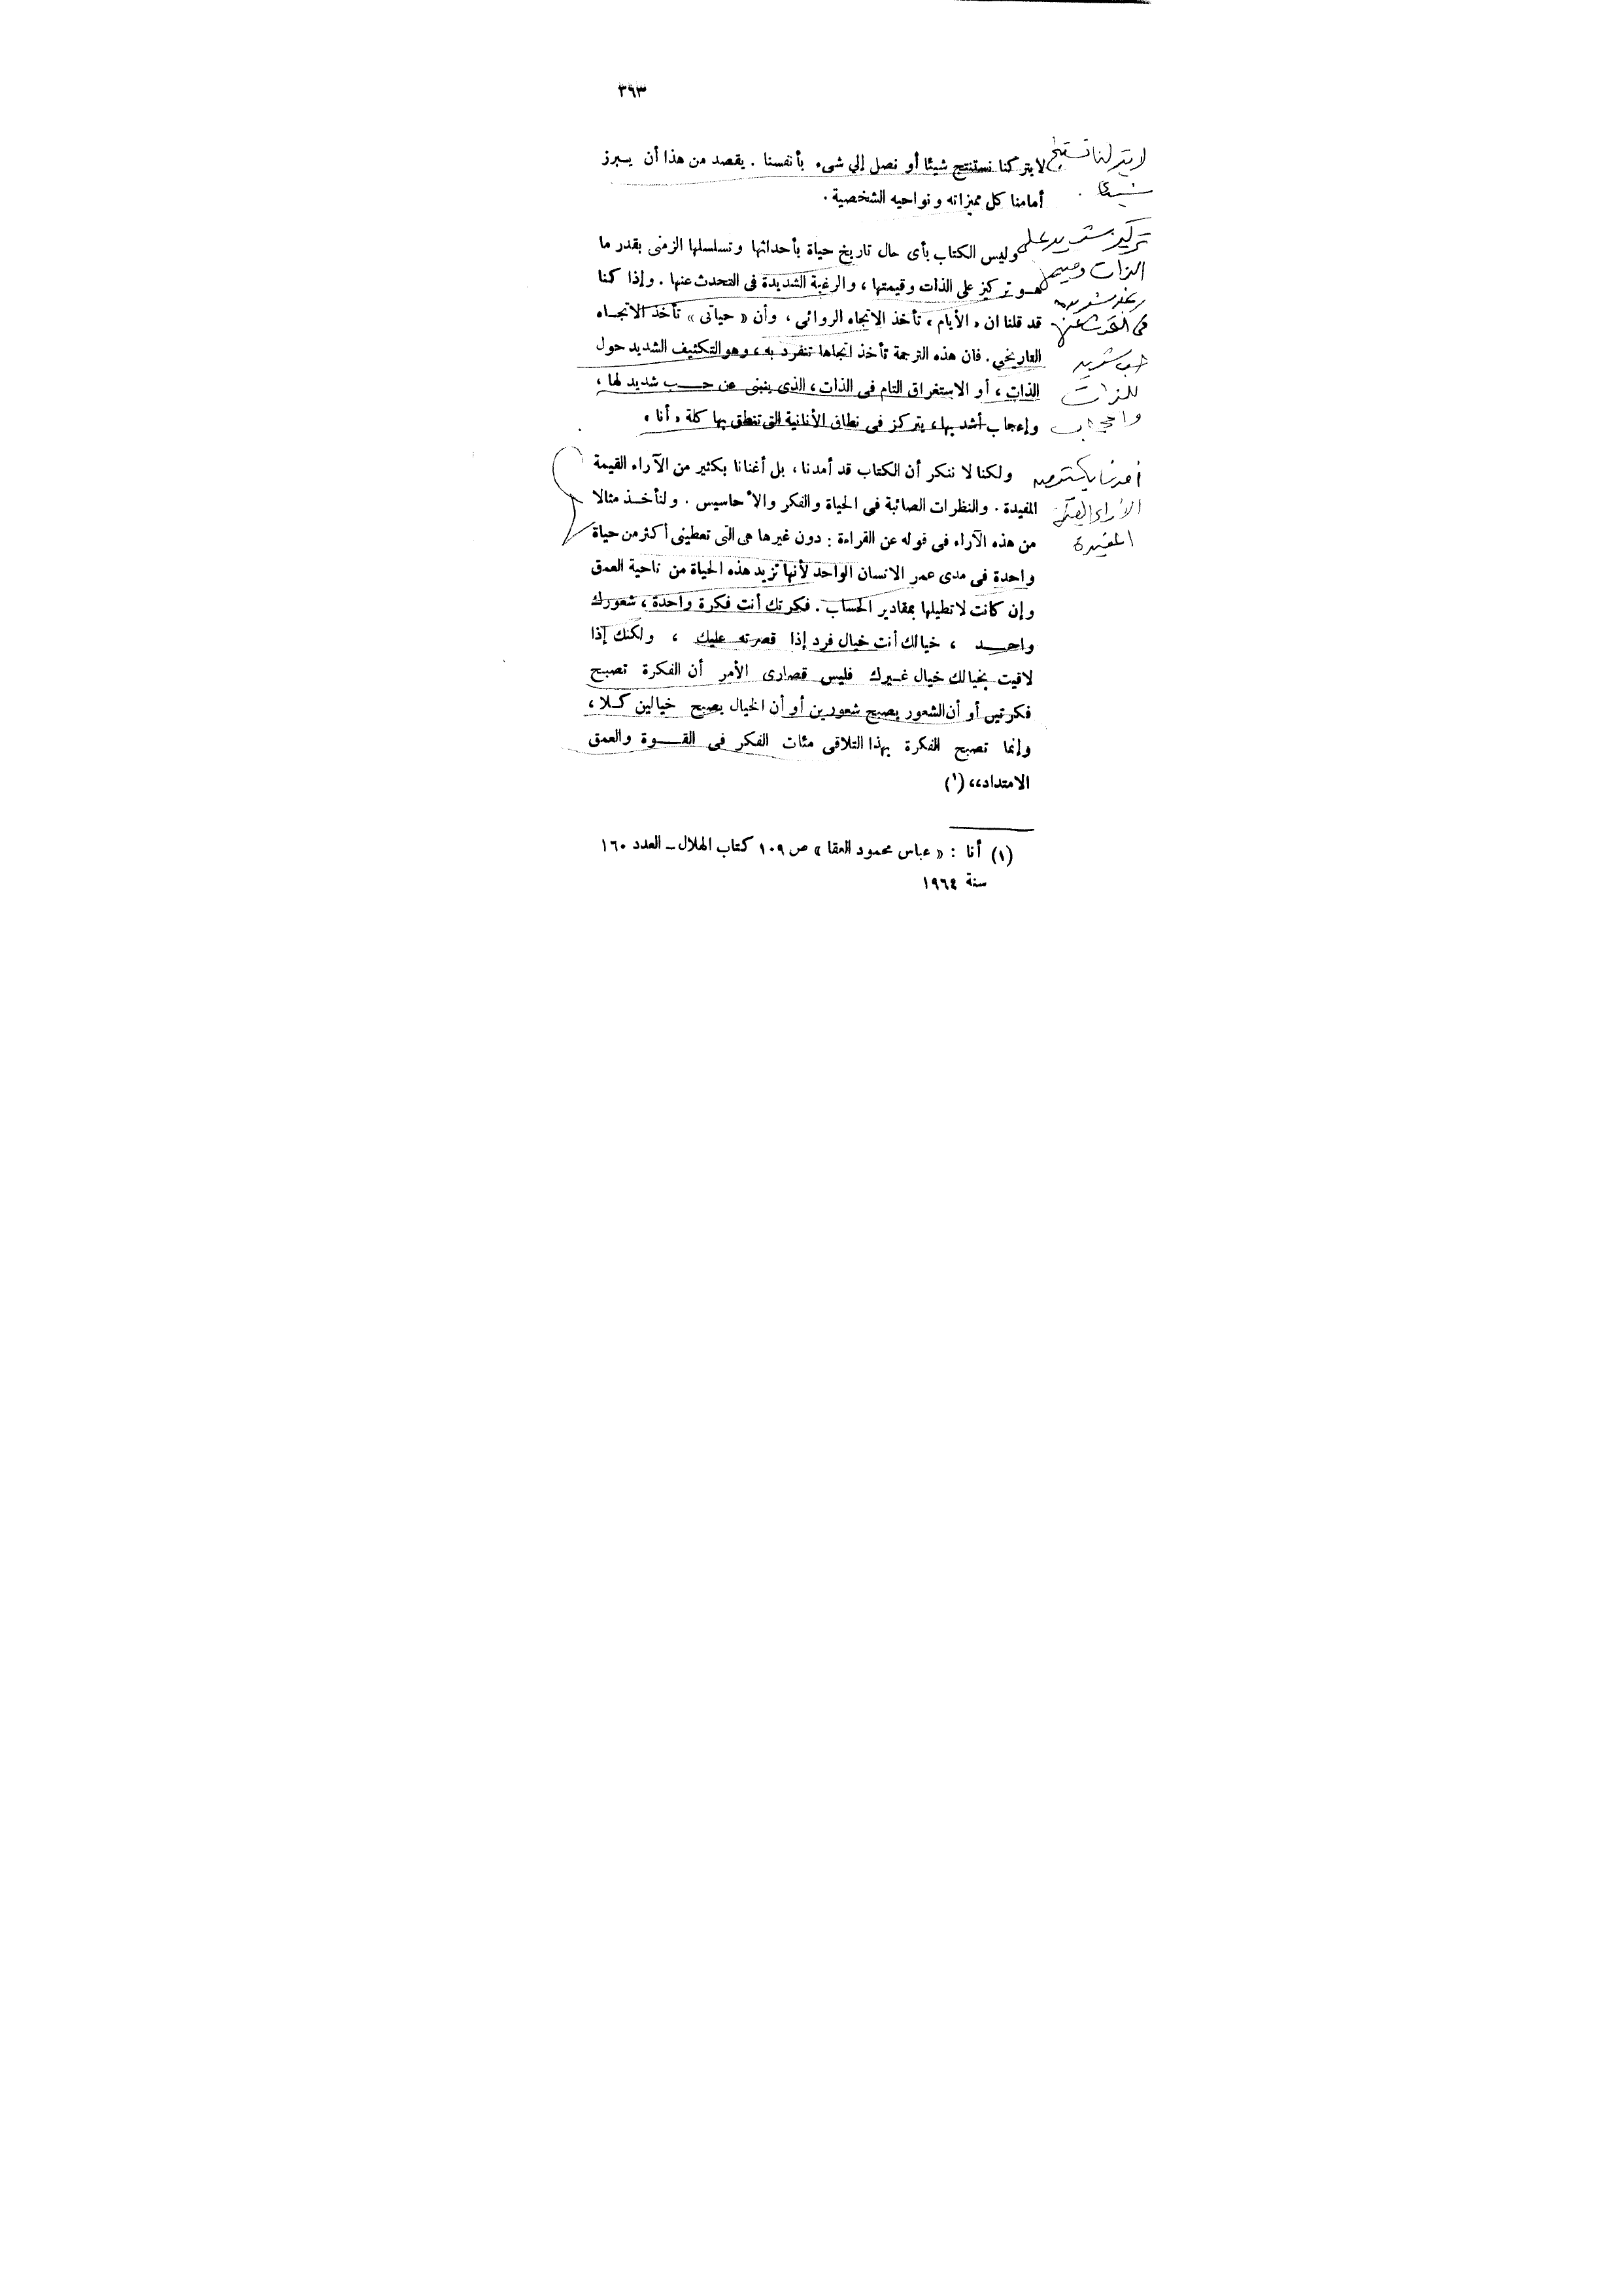 ٣٩٣
لا يتركنا نستنتج شيئا أو نصل إلي شىء بأنفسنا . يقصد من هذا أن يبرز
أمامنا كل مميزاته ونواحيه الشخصية .
وليس الكتاب بأى حال تاريخ حياة بأحداثها وتسلسلها الزمنى بقدر ما
هو تركيز على الذات وقيمتها ، والرغبة الشديدة فى التحدث عنها . وإذا كنا
قد قلنا ان « الأيام » تأخذ الاتجاه الروائى ، وأن « حياتى » تأخذ الاتجاه
التاريخي . فان هذه الترجمة تأخذ اتجاها تنفرد به ، وهو التكثيف الشديد حول
الذات ، أو الاستغراق التام فى الذات ، الذى ينبى عن حب شديد لها ،
وإعجاب أشد بها ، يتركز فى نطاق الأنانية التى تنطق بها كلة « أنا »
ولكنا لا ننكر أن الكتاب قد أمدنا ، بل أغنانا بكثير من الآراء القيمة
المفيدة . والنظرات الصائبة فى الحياة والفكر والأحاسيس . ولنأخذ مثالا
من هذه الآراء فى قوله عن القراءة : دون غيرها هى التى تعطينى أكثر من حياة
واحدة فى مدى عمر الانسان الواحد لأنها تزيد هذه الحياة من ناحية العمق
وإن كانت لا تطيلها بمقادير الحساب . فكرتك أنت فكرة واحدة ، شعورك
واحد ، خيالك أنت خيال فرد إذا قصرته عليك ، ولكنك إذا
لاقيت بخيالك خيال غيرك فليس قصارى الأمر أن الفكرة تصبح
فكرتين أو أن الشعور يصبح شعورين أو أن الخيال يصبح خيالين كلا ،
وإنما تصبح الفكرة بهذا التلاقى مئات الفكر فى القوة والعمق
الامتداد،، (١)
(١) أنا : « عباس محمود العقا » ص ١٠٩ كتاب الهلال ـ العدد ١٦٠
سنة ١٩٦٤
تركيز شديد على
الذات
حب شديد
للذات
واعجاب
الآراء
المفيدة